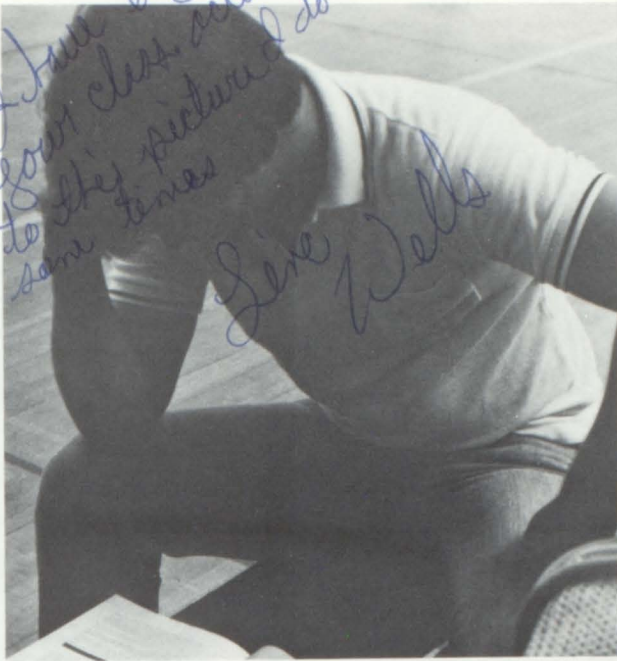 have
your class.
to this picture I do
some times
Gene Wells